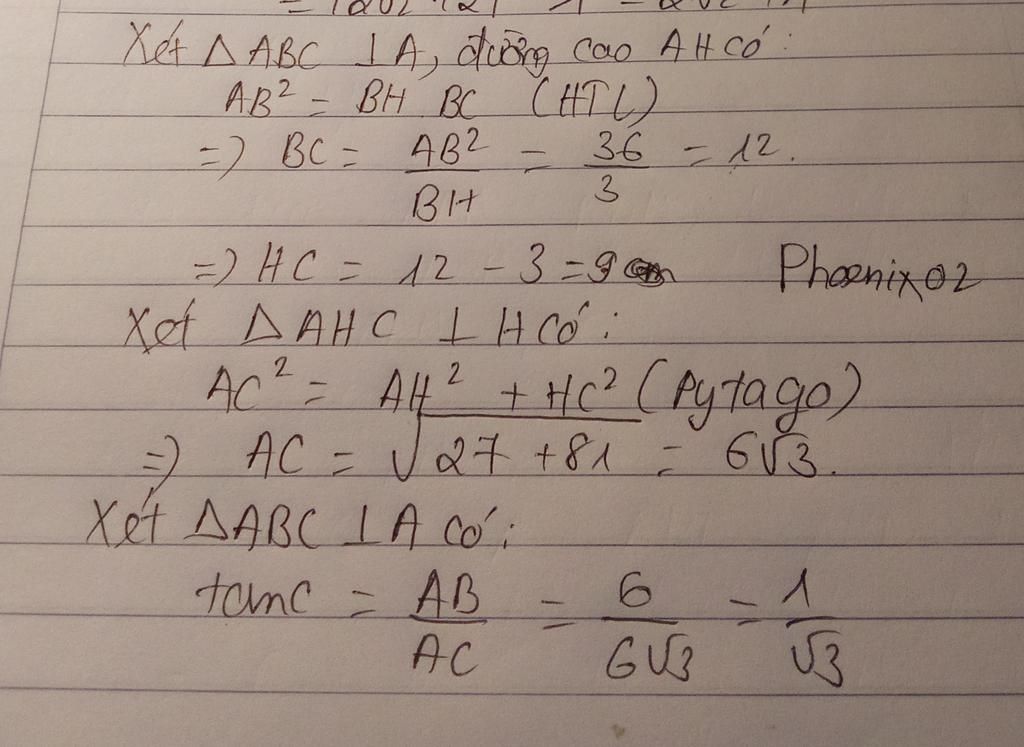 Xét △ABC ⊥A, đường cao AH có:
AB² = BH BC (HTL)
=) BC = AB²/BH = 36/3 = 12.
=) HC = 12 - 3 = 9 cm
Phoenix02
Xét △AHC ⊥ H có:
AC² = AH² + HC² (Pytago)
=) AC = √(27 + 81) = 6√3.
Xét △ABC ⊥A có:
tanC = AB/AC = 6/6√3 = 1/√3